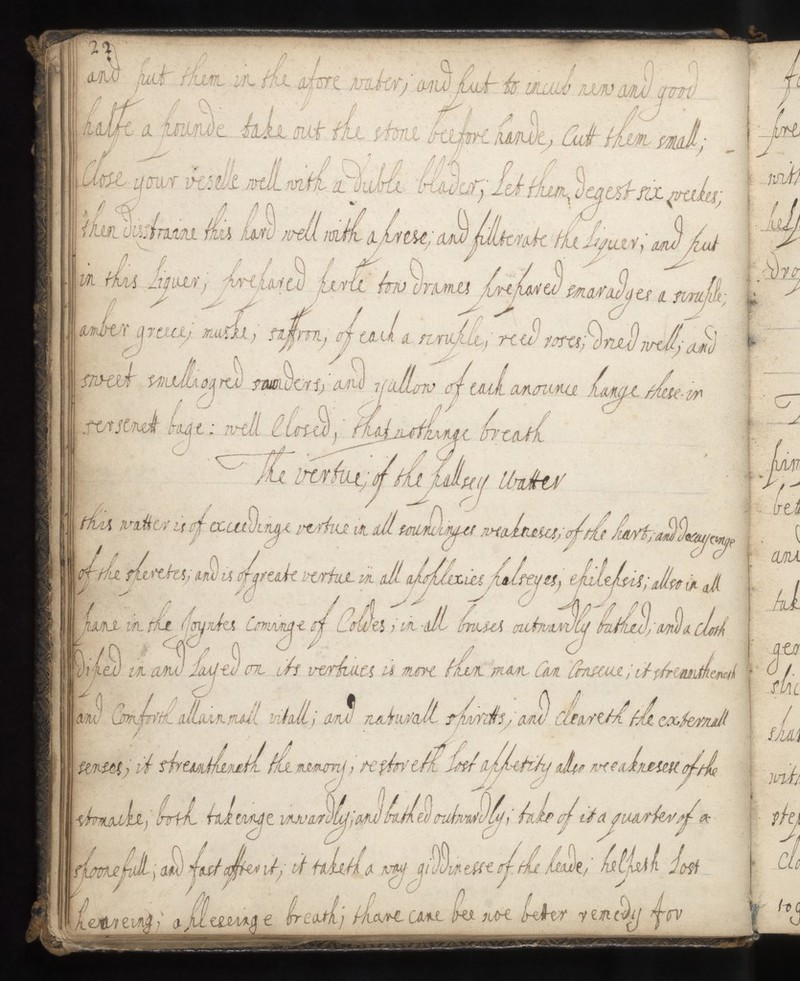 22
and put them in the afore water; and put to incub new and good
halfe a pounde take out the stone beefore hande, Cutt them small;
Close your veselle well with a Duble blader; Let them, degest six weekes;
then disstraine this hard well with a prese; and fillterate the Liquer; and put
in this Liquer; prepared perle tow Drames prepared smaradges a scruple;
amber greece; muske; saffron, of each a scruple; reed roses; dried well; and
sweet smelliogred sanders; and yallow of each anounce hange these in
sersenett bage: well Closed; that nothinge breath
The vertue; of the pallsey Watter
this watter is of exceedinge vertue in all soundinges weakneses; of the hart; and decayenge
of the speretes; and is of greate vertue in all apoplexies palseyes, epilepsis; allso in all
pane in the Joyntes Cominge of Coldes; in all bruses outwardly bathed; and a cloth
diped in and Layed on its vertiues is more then man Can Conseue; it streantheneth
and Comforth all ainmall vitall; and naturall spiritts; and cleareth the externall
senses; it streantheneth the memory; restoreth Lost appetity allso weeaknesese of the
stomacke; both takeinge inwardly; and bathed outwardly; take of it a quarter of a
spoonefull; and fast affter it; it taketh a way giddinesse of the heade; helpeth Lost
heareing; a pleseinge breath; thare cane bee noe better remedy for